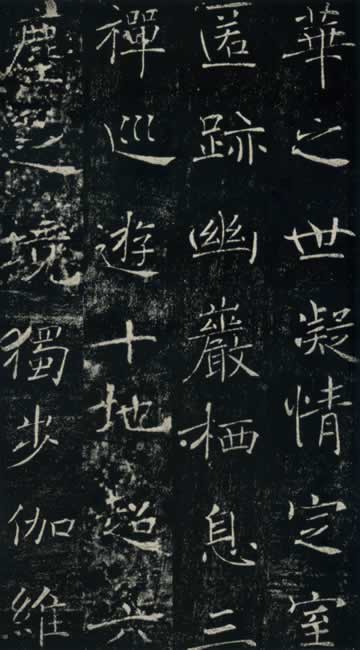 華之世凝情定室
匿跡幽巖栖息三
禪巡遊十地超六
塵之境獨步伽維